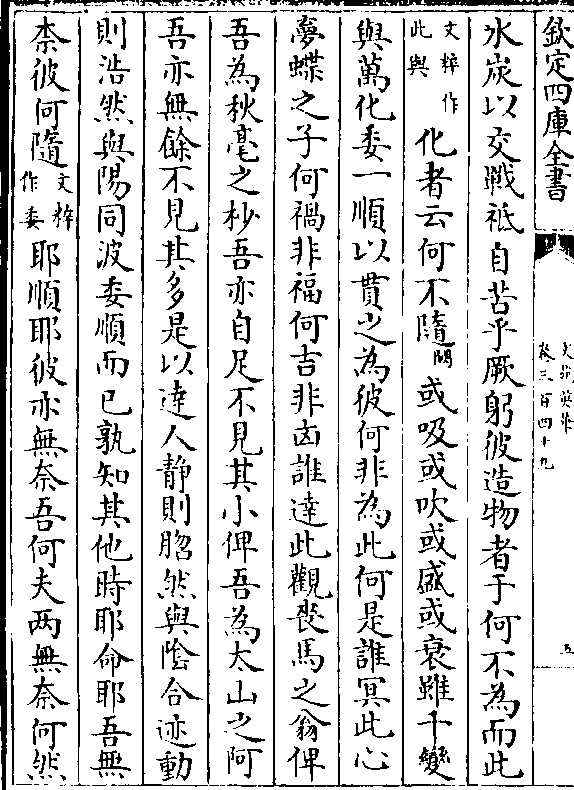 欽定四庫全書
文苑英華
卷三百四十九
五
氷炭以交戰祗自苦乎厥躬彼造物者于何不為而此
文粹作此與化者云何不隨闕或吸或吹或盛或衰雖千變
與萬化委一順以貫之為彼何非為此何是誰冥此心
夢蝶之子何禍非福何吉非凶誰達此觀喪馬之翁俾
吾為秋毫之杪吾亦自足不見其小俾吾為太山之阿
吾亦無餘不見其多是以達人静則脗然與隂合迹動
則浩然與陽同波委順而已孰知其他時耶命耶吾無
柰彼何隨文粹作委耶順耶彼亦無奈吾何夫两無奈何然